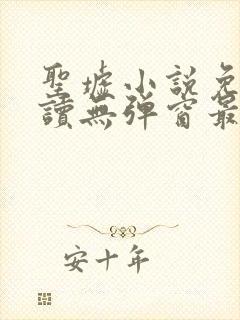 聖墟小說免
讀無彈窗最
安十年